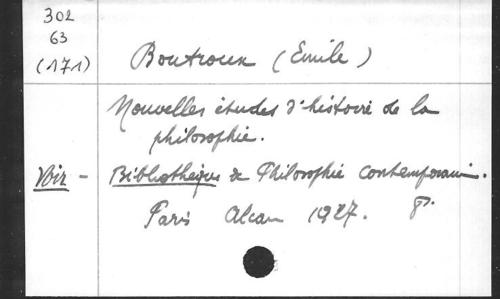 302
63
(171)
Boutroux (Emile)
Nouvelles études d'histoire de la
philosophie.
Voir - Bibliothèque de Philosophie contemporaine.
Paris Alcan 1927. 8°.